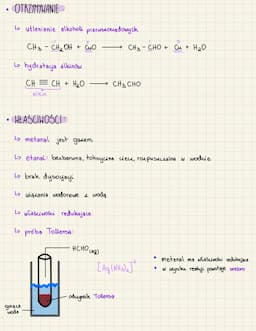 • OTRZYMYWANIE
↳ utlenianie alkoholi pierwszorzędowych
CH₃ – CH₂OH + CuO ⟶ CH₃ – CHO + Cu + H₂O
↳ hydratacja alkinów
CH ≡ CH + H₂O ⟶ CH₃CHO
• WŁAŚCIWOŚCI
↳ metanal jest gazem
↳ etanal: bezbarwna, toksyczna ciecz, rozpuszczalna w wodzie
↳ brak dysocjacji
↳ wiązania wodorowe z wodą
↳ właściwości redukujące
↳ próba Tollensa:
HCHO(aq)
[Ag(NH₃)₂]⁺
• metanal ma właściwości redukujące
• w wyniku reakcji powstaje
odczynnik Tollensa
gorąca
woda